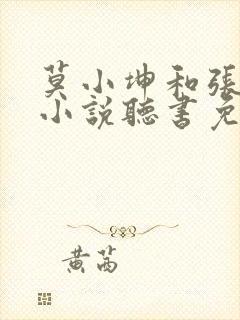 莫小坤和張
小說聽書免
黃茜